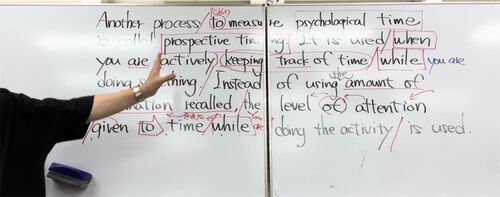 Another process / to measure psychological time
is called prospective timing. It is used / when
you are actively / keeping track of time / while you are
doing something / Instead of using the amount of
recalled, the level of attention
given to time / while doing the activity / is used.